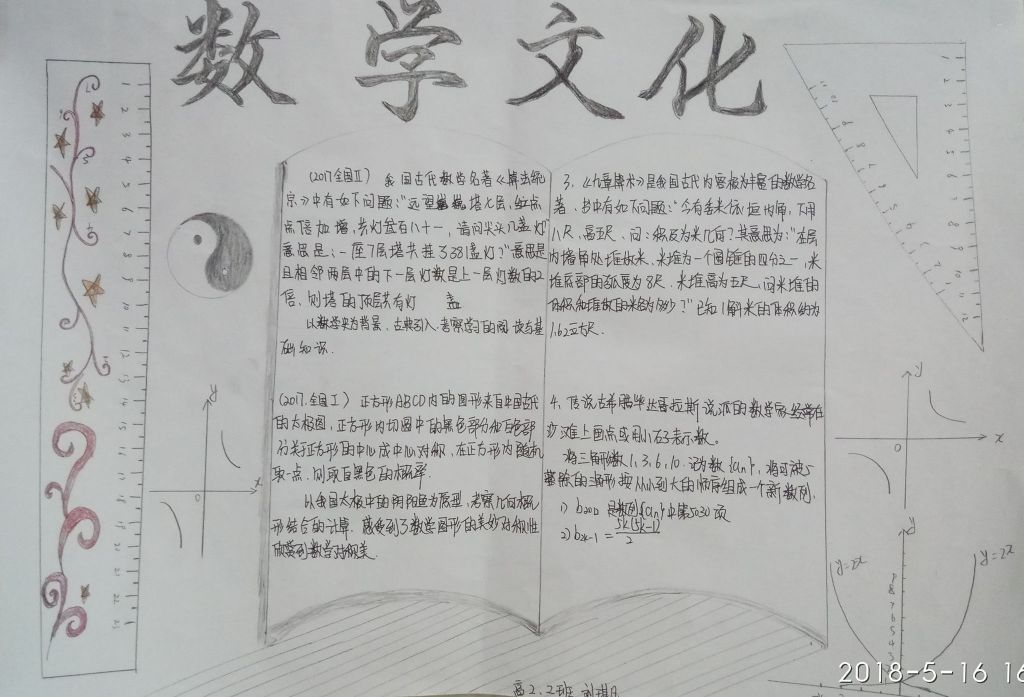 数学文化
(2017全国Ⅱ) 我国古代数学名著《算法统
宗》中有如下问题:"远望巍巍塔七层,红点
点倍加增,共灯盏百八十一,请问尖头几盏灯"
意思是:一座7层塔共挂了381盏灯?"意思是
且相邻两层中的下一层灯数是上一层灯数的2
倍,则塔的顶层共有灯 盏
以数学史为背景、古典引入.考察学习的阅读与基
础知识.
(2017.全国Ⅰ) 正方形ABCD内的图形来自中国古代
的太极图,正方形内切圆中的黑色部分和白色部
分关于正方形的中心成中心对称,在正方形内随机
取一点,则取自黑色的概率.
以我国太极中的阴阳鱼为原型,考察几何概
形结合的计算.感受到了数学图形的美妙对称性
欣赏到数学对称美.
3.《九章算术》是我国古代内容极为丰富的数学名
著、书中有如下问题:"今有委米依垣内角,下周
八尺,高五尺.问:积及为米几何?其意思为:"在屋
内墙角处堆放米.米堆为一个圆锥的四分之一,米
堆底部的弧度为8尺.米堆高为五尺,问米堆的
体积和堆放的米各为多少?"已知1斛米的体积约为
1.62立方尺.
4.传说古希腊毕达哥拉斯说派的数学家经常在
沙滩上画点或用小石子表示数。
将三角形数1,3,6,10.记为数{an},将可被5
整除的三角形按从小到大的顺序组成一个新数列.
1) b2012 是数列{an}中第5030项
2) b2k-1 = 5k(5k-1)/2
y
x
0
y
x
0
y
y=2x
y=2x
高2.2班
2018-5-16 16